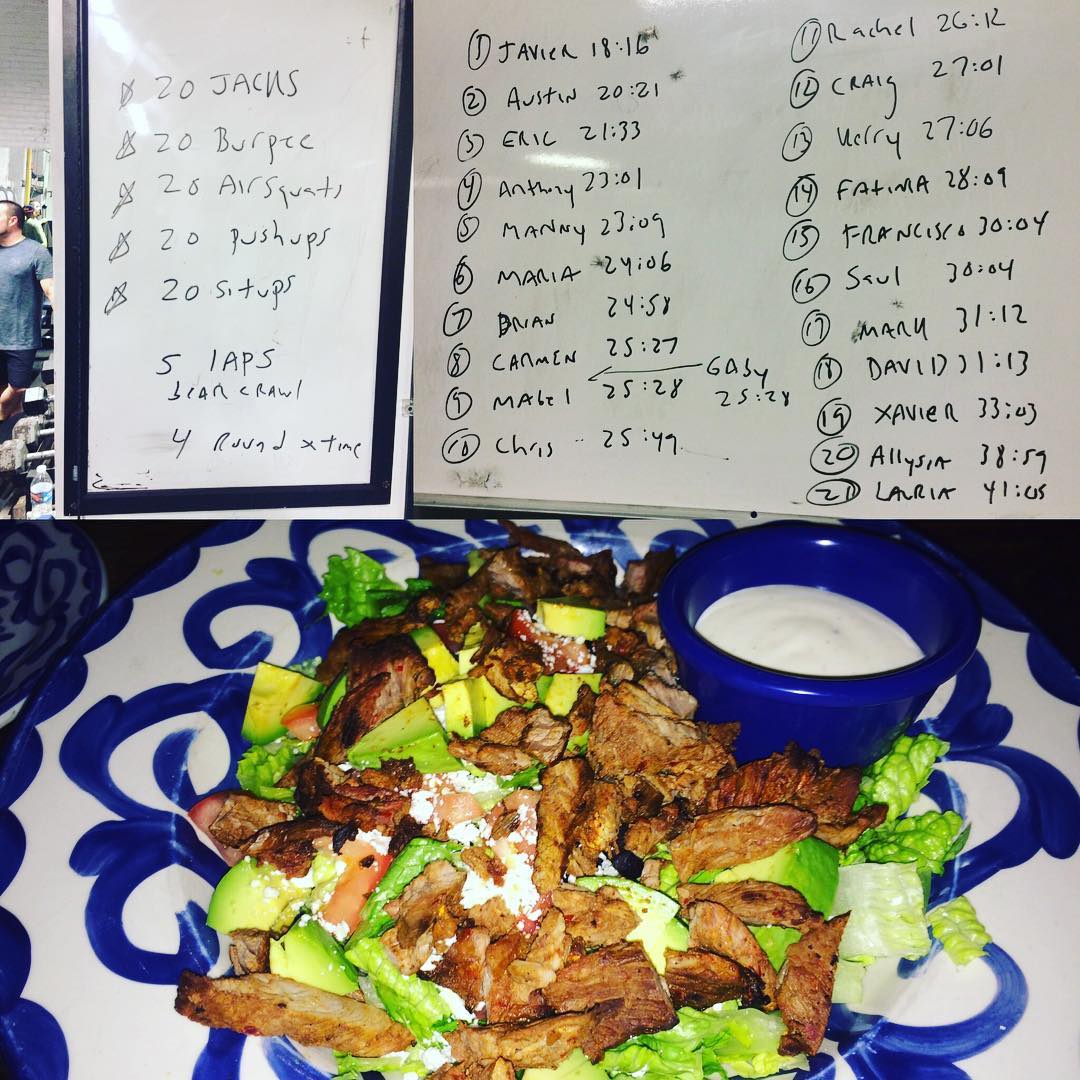 20 JACKS
20 Burpee
20 AirSquats
20 pushups
20 situps
5 LAPS
BEAR CRAWL
4 Round x time
1 JAVIER 18:16
2 AUSTIN 20:21
3 ERIC 21:33
4 Anthony 23:01
5 MANNY 23:09
6 MARIA 24:06
7 BRIAN 24:58
8 CARMEN 25:27
GABY 25:28
9 MABEL 25:28
10 Chris 25:49
11 Rachel 26:12
12 CRAIG 27:01
13 Kerry 27:06
14 FATIMA 28:09
15 FRANCISCO 30:04
16 Saul 30:04
17 MARK 31:12
18 DAVID 31:13
19 XAVIER 33:03
20 Allysia 38:59
21 LAURIA 41:05